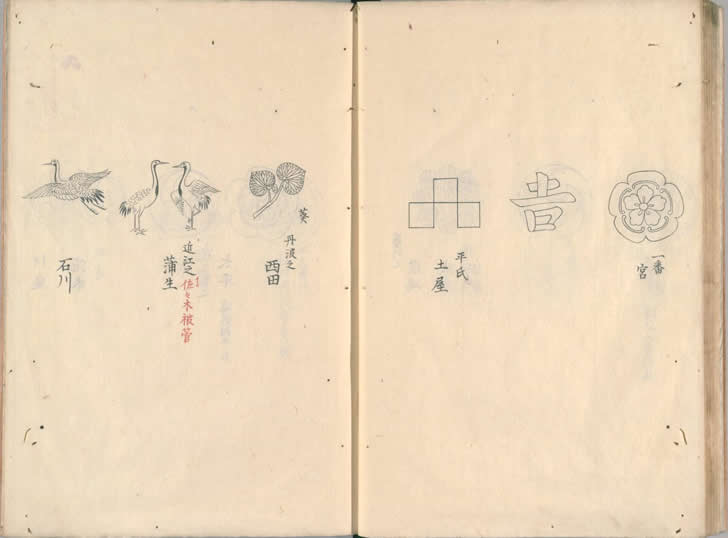 一番
宮
平氏
土屋
葵
丹波之
西田
近江之
蒲生
佐々木被管
石川